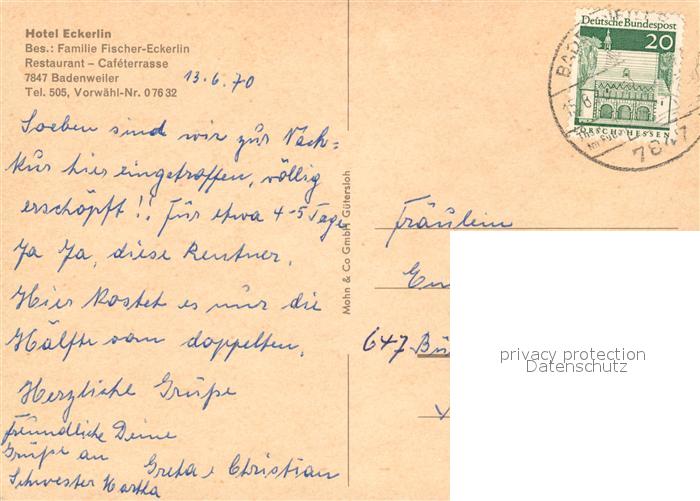 Hotel Eckerlin
Bes.: Familie Fischer-Eckerlin
Restaurant – Caféterrasse
7847 Badenweiler
Tel. 505, Vorwähl-Nr. 07632
13.6.70
Soeben sind wir zur Nach=
kur hier eingetroffen, völlig
erschöpft!! Für etwa 4-5 Tage
Ja Ja, diese Rentner.
Hier kostet es nur die
Hälfte vom doppelten.
Herzliche Grüße
Freundliche Deine
Grüße an Greta e Christian
Schwester Martha
Mohn & Co GmbH Gütersloh
Deutsche Bundespost
20
LORSCH/HESSEN
7847
Fräulein
647 Bü
privacy protection
Datenschutz